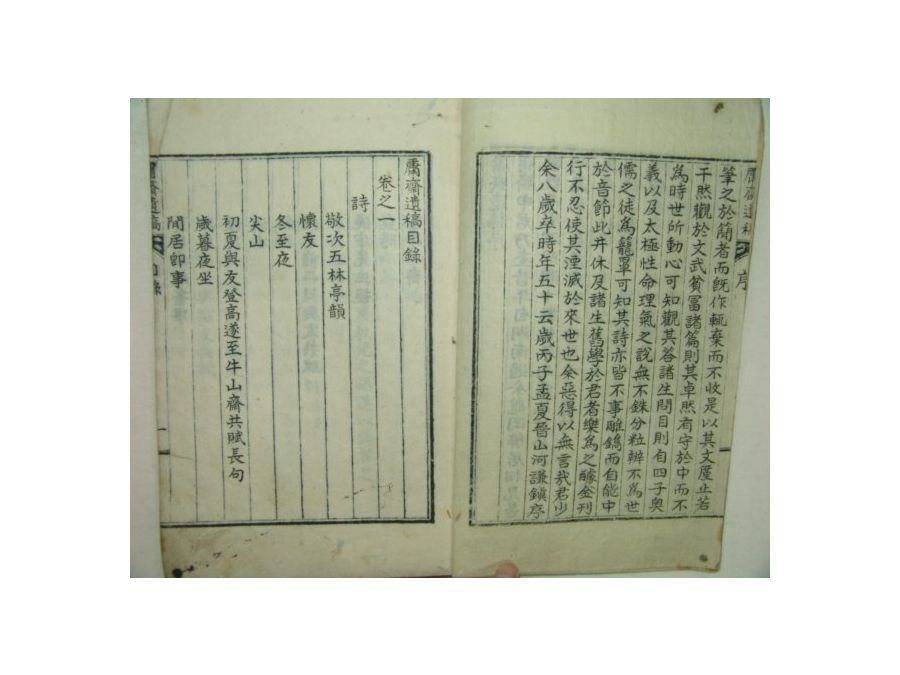 筆之於簡者而旣作輒棄而不收是以其文廑止若
干然觀於文武貧富諸篇則其卓然有守於中而不
為時世所動心可知觀其答諸生問目則自四子奧
義以及太極性命理氣之說無不銖分粒辨不為世
儒之徒為籠罩可知其詩亦皆不事雕鎪而自能中
於音節此井休及諸生舊學於君者樂為之醵金刊
行不忍使其湮滅於來世也余惡得以無言哉君少
余八歲卒時年五十云歲丙子孟夏晉山河謙鎭序
庸齋遺稿目錄
卷之一
詩
敬次五林亭韻
懷友
冬至夜
尖山
初夏與友登高遂至牛山齋共賦長句
歲暮夜坐
閒居卽事